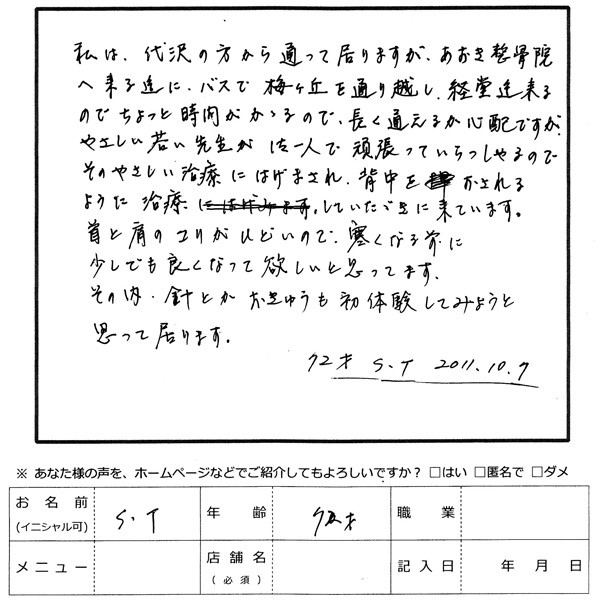 私は、代沢の方から通って居りますが、あおき整骨院
へ来る迄に、バスで梅ヶ丘を通り越し、経堂迄来る
のでちょっと時間がかゝるので、長く通えるか心配ですが、
やさしい若い先生が 一人で頑張っていらっしゃるので
そのやさしい治療にはげまされ、背中を おされる
ように治療にはげみます。していただきに来ています。
首と肩のコリがひどいので、寒くなる前に
少しでも良くなって欲しいと思ってます。
その内、針とか おきゅうも初体験してみようと
思って居ります。
72才 S.T 2011.10.7
※ あなた様の声を、ホームページなどでご紹介してもよろしいですか? □はい □匿名で □ダメ
お名前 (イニシャル可) S.T 年齢 72才 職業
メニュー 店舗名 (必須) 記入日 年 月 日